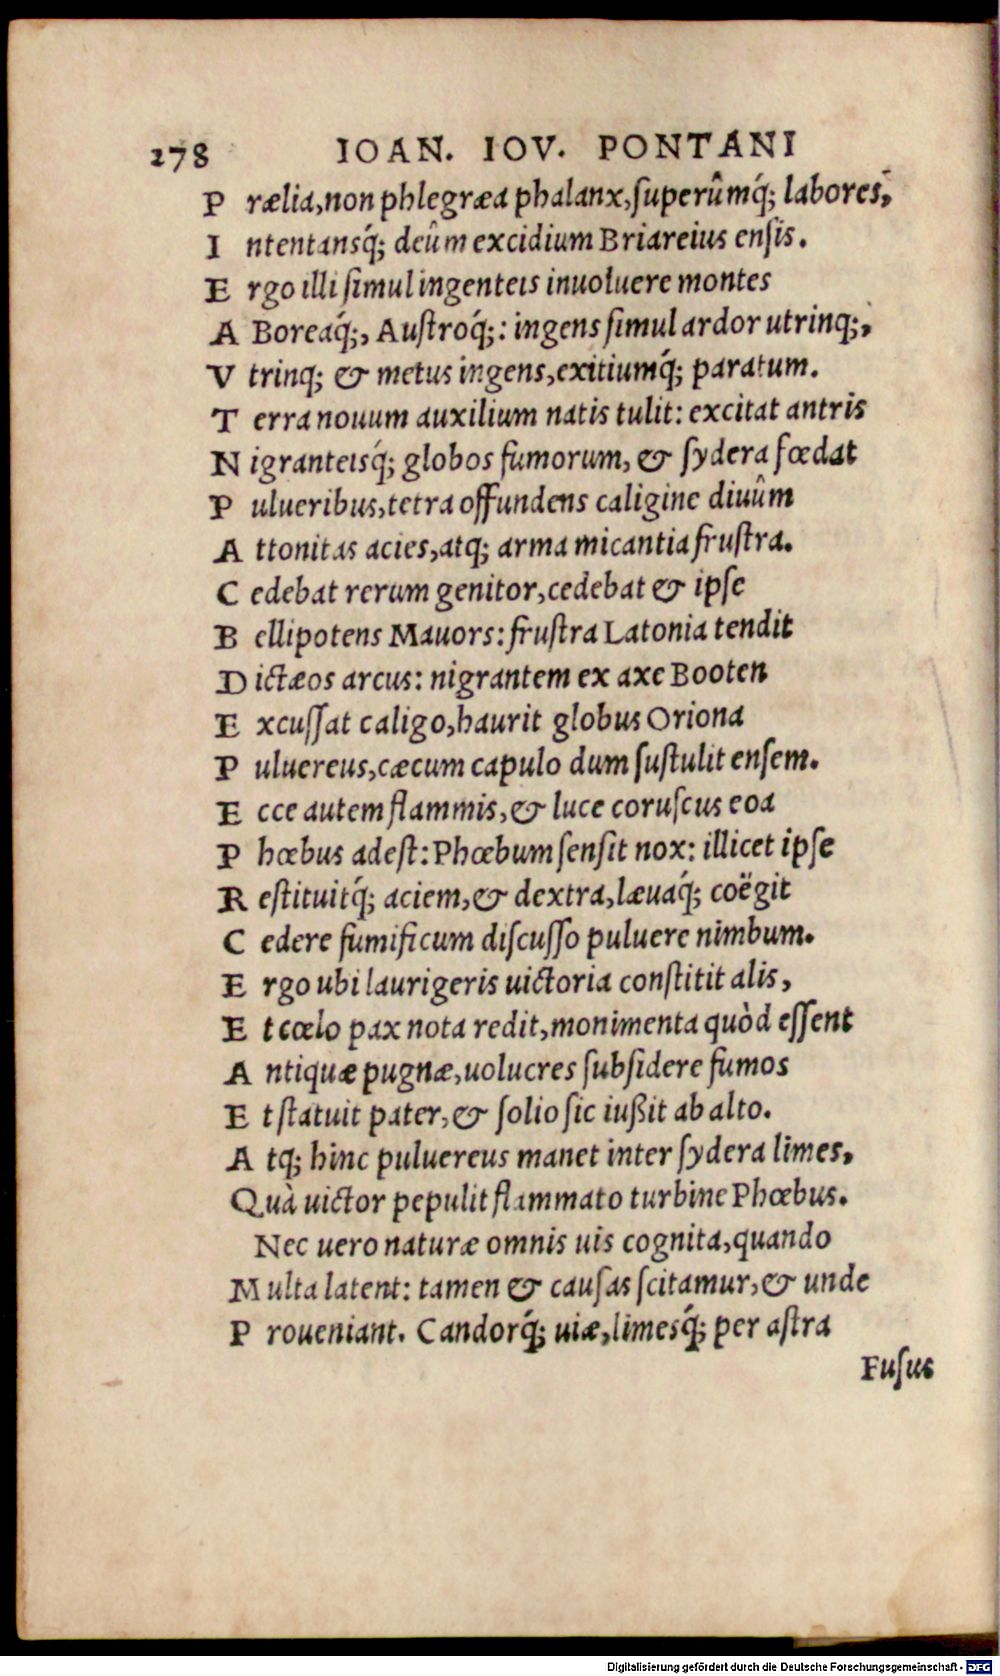 278 IOAN. IOV. PONTANI
P rælia, non phlegræa phalanx, superûmq́; labores,
I ntentansq́; deûm excidium Briareius ensis.
E rgo illi simul ingenteis inuoluere montes
A Boreaq́;, Austroq́;: ingens simul ardor utrinq;,
V trinq; & metus ingens, exitiumq́; paratum.
T erra nouum auxilium natis tulit: excitat antris
N igranteisq́; globos fumorum, & sydera fœdat
P ulueribus, tetra offundens caligine diuûm
A ttonitas acies, atq; arma micantia frustra.
C edebat rerum genitor, cedebat & ipse
B ellipotens Mauors: frustra Latonia tendit
D ictæos arcus: nigrantem ex axe Booten
E xcussat caligo, haurit globus Oriona
P uluereus, cæcum capulo dum sustulit ensem.
E cce autem flammis, & luce coruscus eoa
P hœbus adest: Phœbum sensit nox: illicet ipse
R estituitq́; aciem, & dextra, læuaq́; coëgit
C edere fumificum discusso puluere nimbum.
E rgo ubi laurigeris uictoria constitit alis,
E t cœlo pax nota redit, monimenta quòd essent
A ntiquæ pugnæ, uolucres subsidere fumos
E t statuit pater, & solio sic iußit ab alto.
A tq; hinc puluereus manet inter sydera limes,
Quà uictor pepulit flammato turbine Phœbus.
Nec uero naturæ omnis uis cognita, quando
M ulta latent: tamen & causas scitamur, & unde
P roueniant. Candorq́; uiæ, limesq́; per astra
Fusus
Digitalisierung gefördert durch die Deutsche Forschungsgemeinschaft - DFG